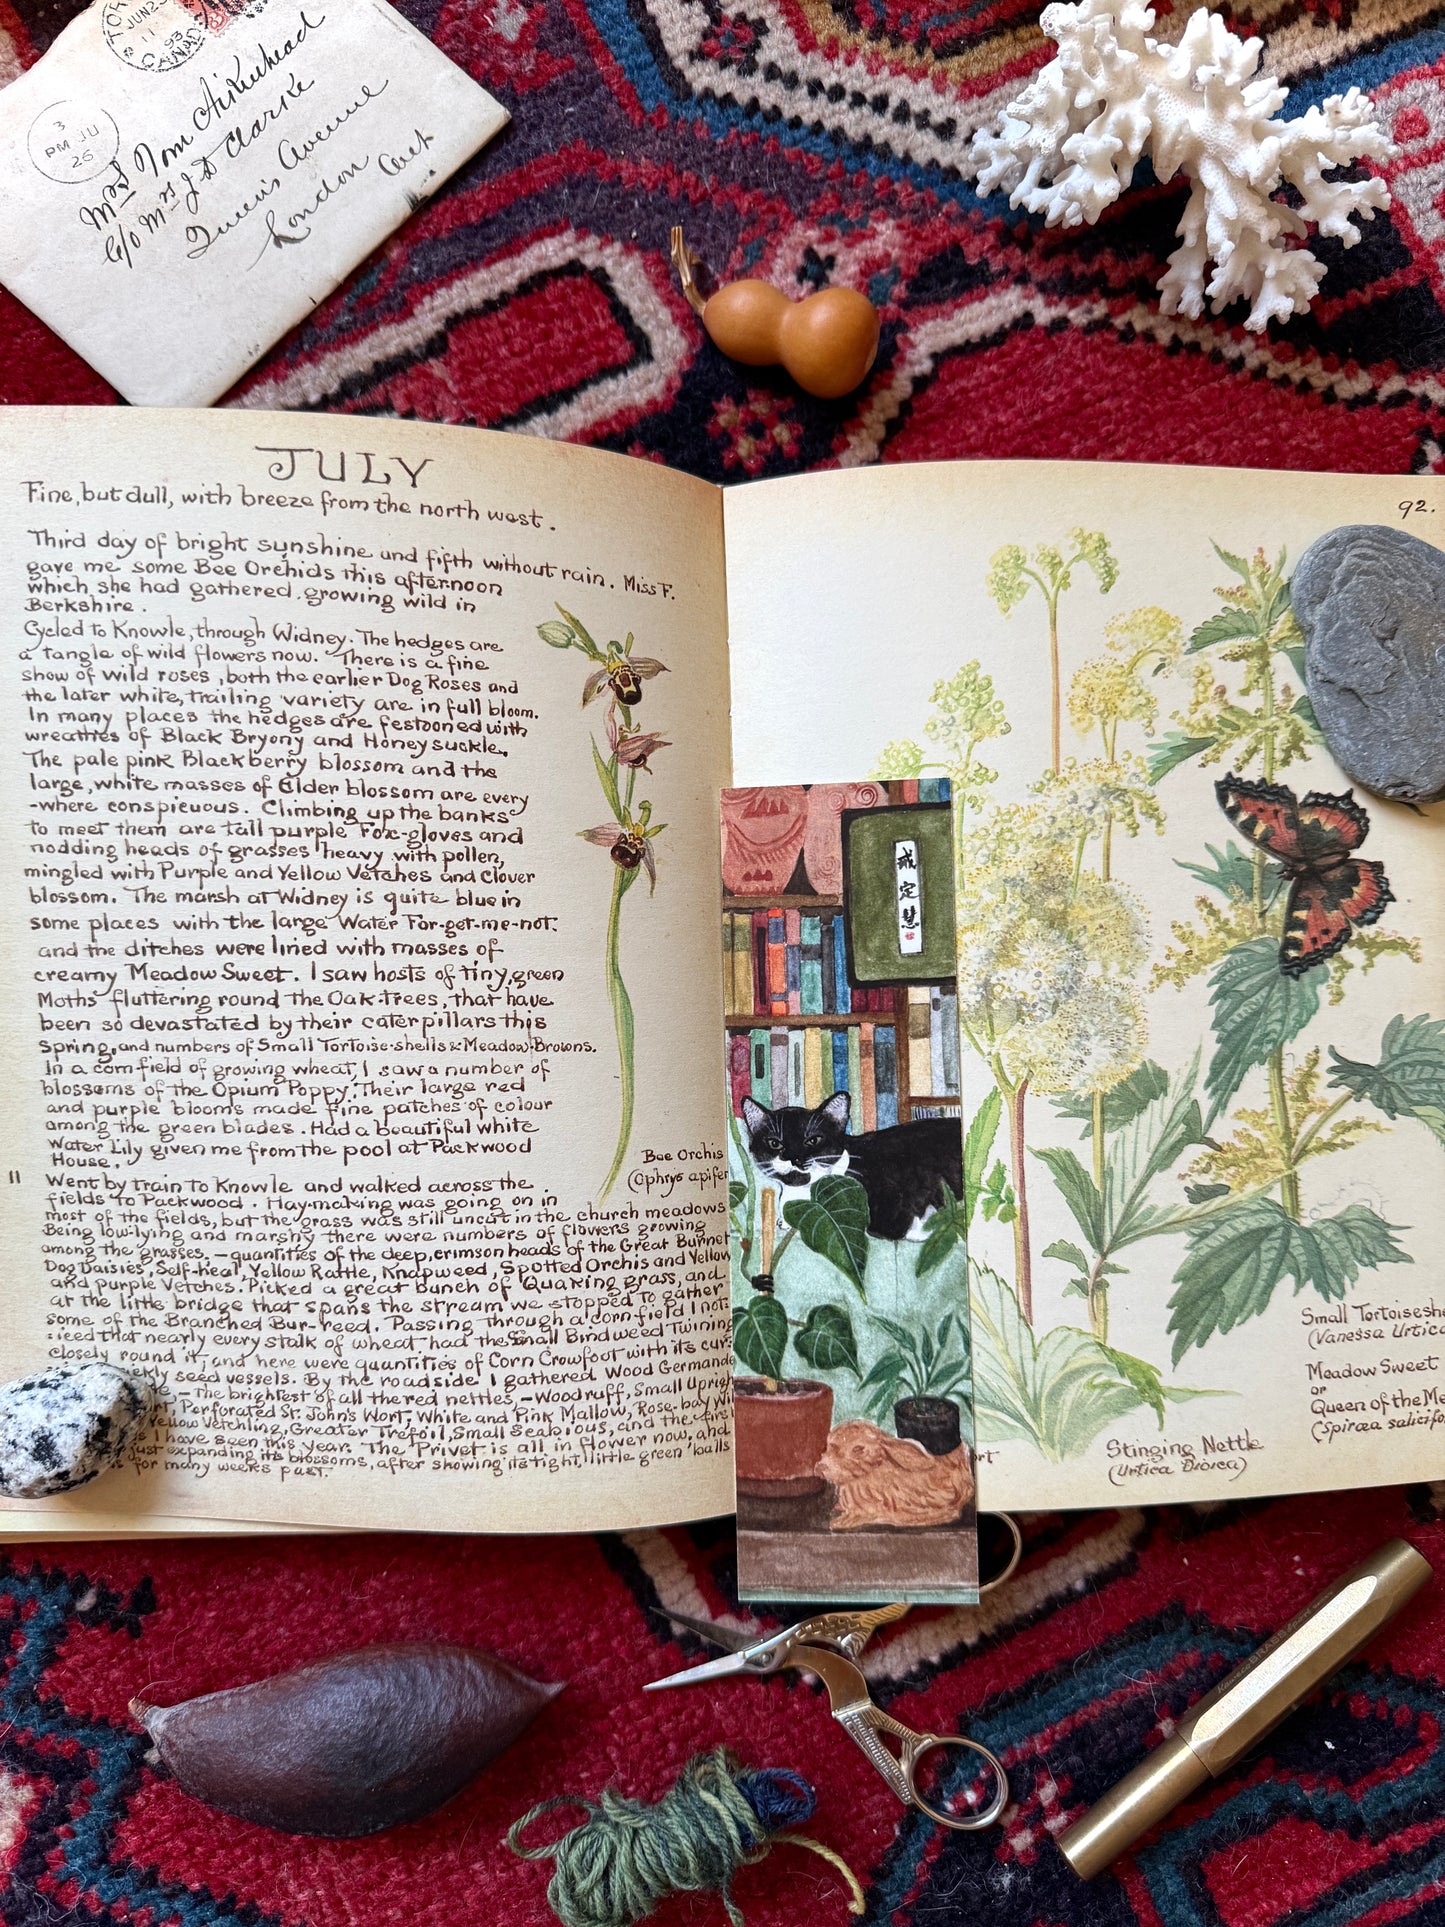 JUN 25
93
CANADA
3
PM JU
26
Mrs Tom Aikenhead
c/o Mrs J D Clarke
Queens Avenue
London
JULY
Fine, but dull, with breeze from the north west.
Third day of bright sunshine and fifth without rain. Miss F.
gave me some Bee Orchids this afternoon
which she had gathered, growing wild in
Berkshire.
Cycled to Knowle, through Widney. The hedges are
a tangle of wild flowers now. There is a fine
show of wild roses, both the earlier Dog Roses and
the later white, trailing variety are in full bloom.
In many places the hedges are festooned with
wreathes of Black Bryony and Honeysuckle.
The pale pink Blackberry blossom and the
large, white masses of Elder blossom are every
-where conspicuous. Climbing up the banks
to meet them are tall purple Fox-gloves and
nodding heads of grasses heavy with pollen,
mingled with Purple and Yellow Vetches and Clover
blossom. The marsh at Widney is quite blue in
some places with the large Water For-get-me-not.
and the ditches were lined with masses of
creamy Meadow Sweet. I saw hosts of tiny, green
Moths fluttering round the Oak-trees, that have
been so devastated by their caterpillars this
spring, and numbers of Small Tortoise-shells & Meadow Browns.
In a corn-field of growing wheat, I saw a number of
blossoms of the Opium Poppy. Their large red
and purple blooms made fine patches of colour
among the green blades. Had a beautiful white
Water Lily given me from the pool at Packwood
House.
11 Went by train to Knowle and walked across the
fields to Packwood. Hay-making was going on in
most of the fields, but the grass was still uncut in the church meadows
Being low-lying and marshy there were numbers of flowers growing
among the grasses, - quantities of the deep, crimson heads of the Great Burnet
Dog Daisies, Self-heal, Yellow Rattle, Knapweed, Spotted Orchis and Yellow
and purple Vetches. Picked a great bunch of Quaking grass, and
at the little bridge that spans the stream we stopped to gather
some of the Branched Bur-reed. Passing through a corn-field I not
iced that nearly every stalk of wheat, had the Small Bindweed Twining
closely round it, and here were quantities of Corn Crowfoot with its cur
ckly seed vessels. By the roadside I gathered Wood Germande
- The brightest of all the red nettles, - Woodruff, Small Uprigh
rt, Perforated St. John's Wort, White and Pink Mallow, Rose-bay Wil
Yellow Vetchling, Greater Trefoil, Small Scabious, and the first
s I have seen this year. The Privet is all in flower now, and
just expanding its blossoms, after showing its tight, little green balls
for many weeks past.
Bee Orchis
(Ophrys apifer
92.
戒
定
慧
Small Tortoisesh
(Vanessa Urtica
Meadow Sweet
or
Queen of the Me
(Spiræa salicifo
Stinging Nettle
(Urtica Dioica)
ort
Kaweco BRASS Sport